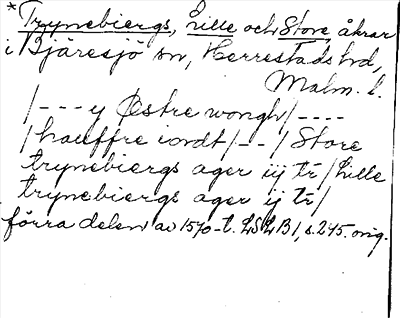 *Trynebiergs, Lille och Store, åkrar
i Bjäresjö sn, Herrestads hd,
Malm. l.
/--- y Østre wongh/----
/hauffre iordt/--/Store
trynebiergs ager iij tr/Lille
trynebiergs ager ij tr/
förra delen av 1570-t. LSLB1, s. 245. orig.